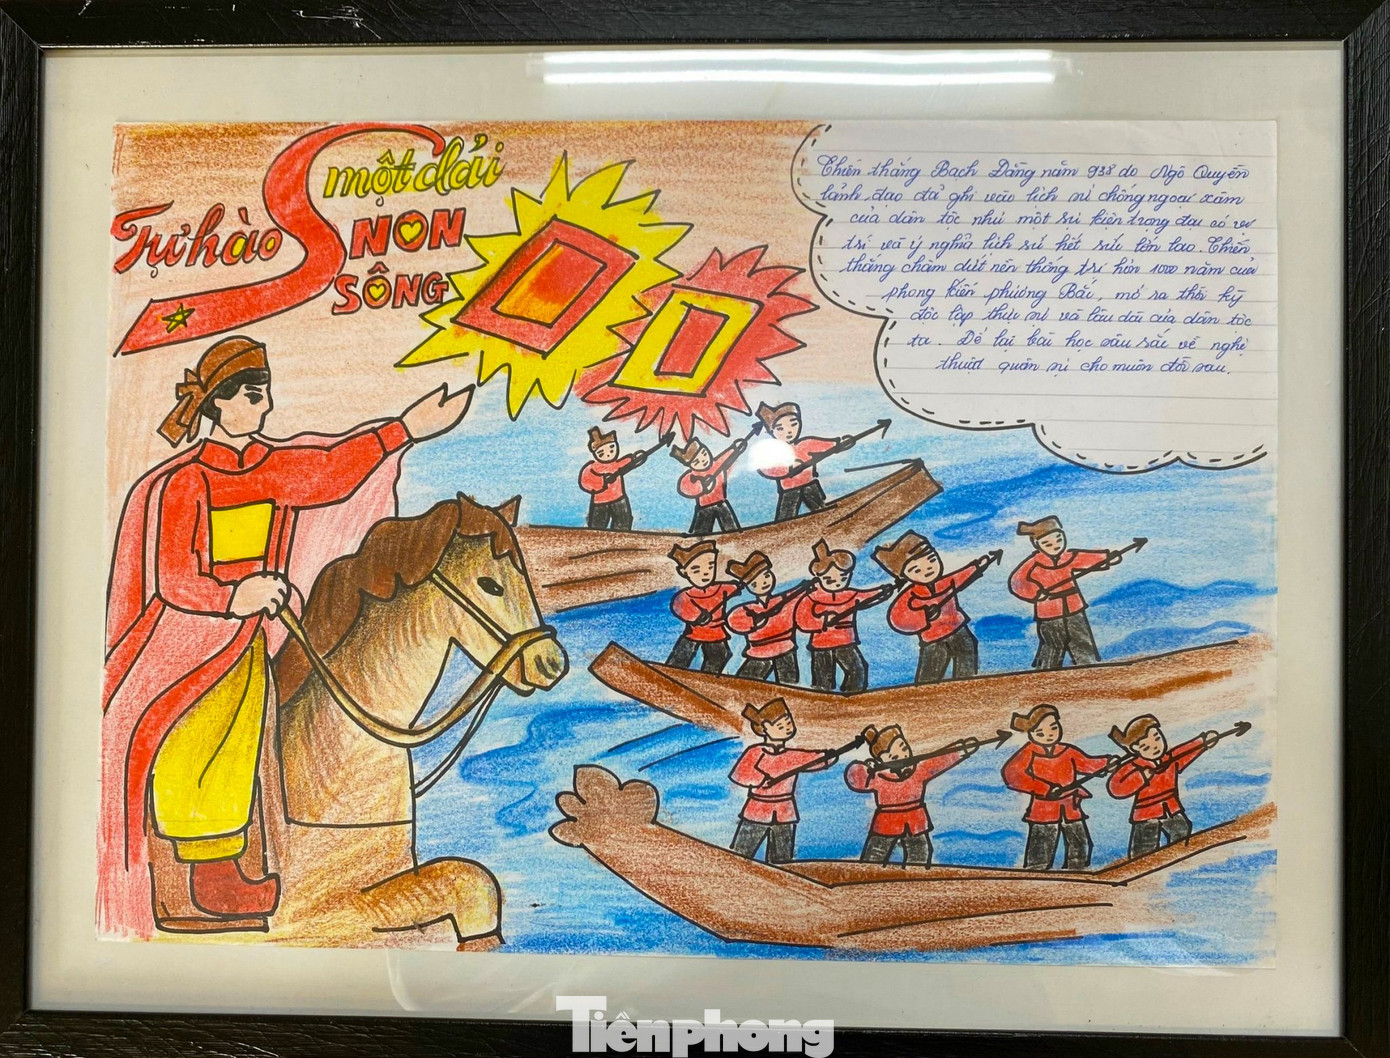 Tự hào
một dải
NON
SÔNG
Chiến thắng Bạch Đằng năm 938 do Ngô Quyền
lãnh đạo đã ghi vào lịch sử chống ngoại xâm
của dân tộc như một sự kiện trọng đại có vị
trí và ý nghĩa lịch sử hết sức lớn lao. Chiến
thắng chấm dứt nền thống trị hơn 1000 năm của
phong kiến phương Bắc, mở ra thời kỳ
độc lập thực sự và lâu dài của dân tộc
ta. Để lại bài học sâu sắc về nghệ
thuật quân sự cho muôn đời sau.
Tiềnphong